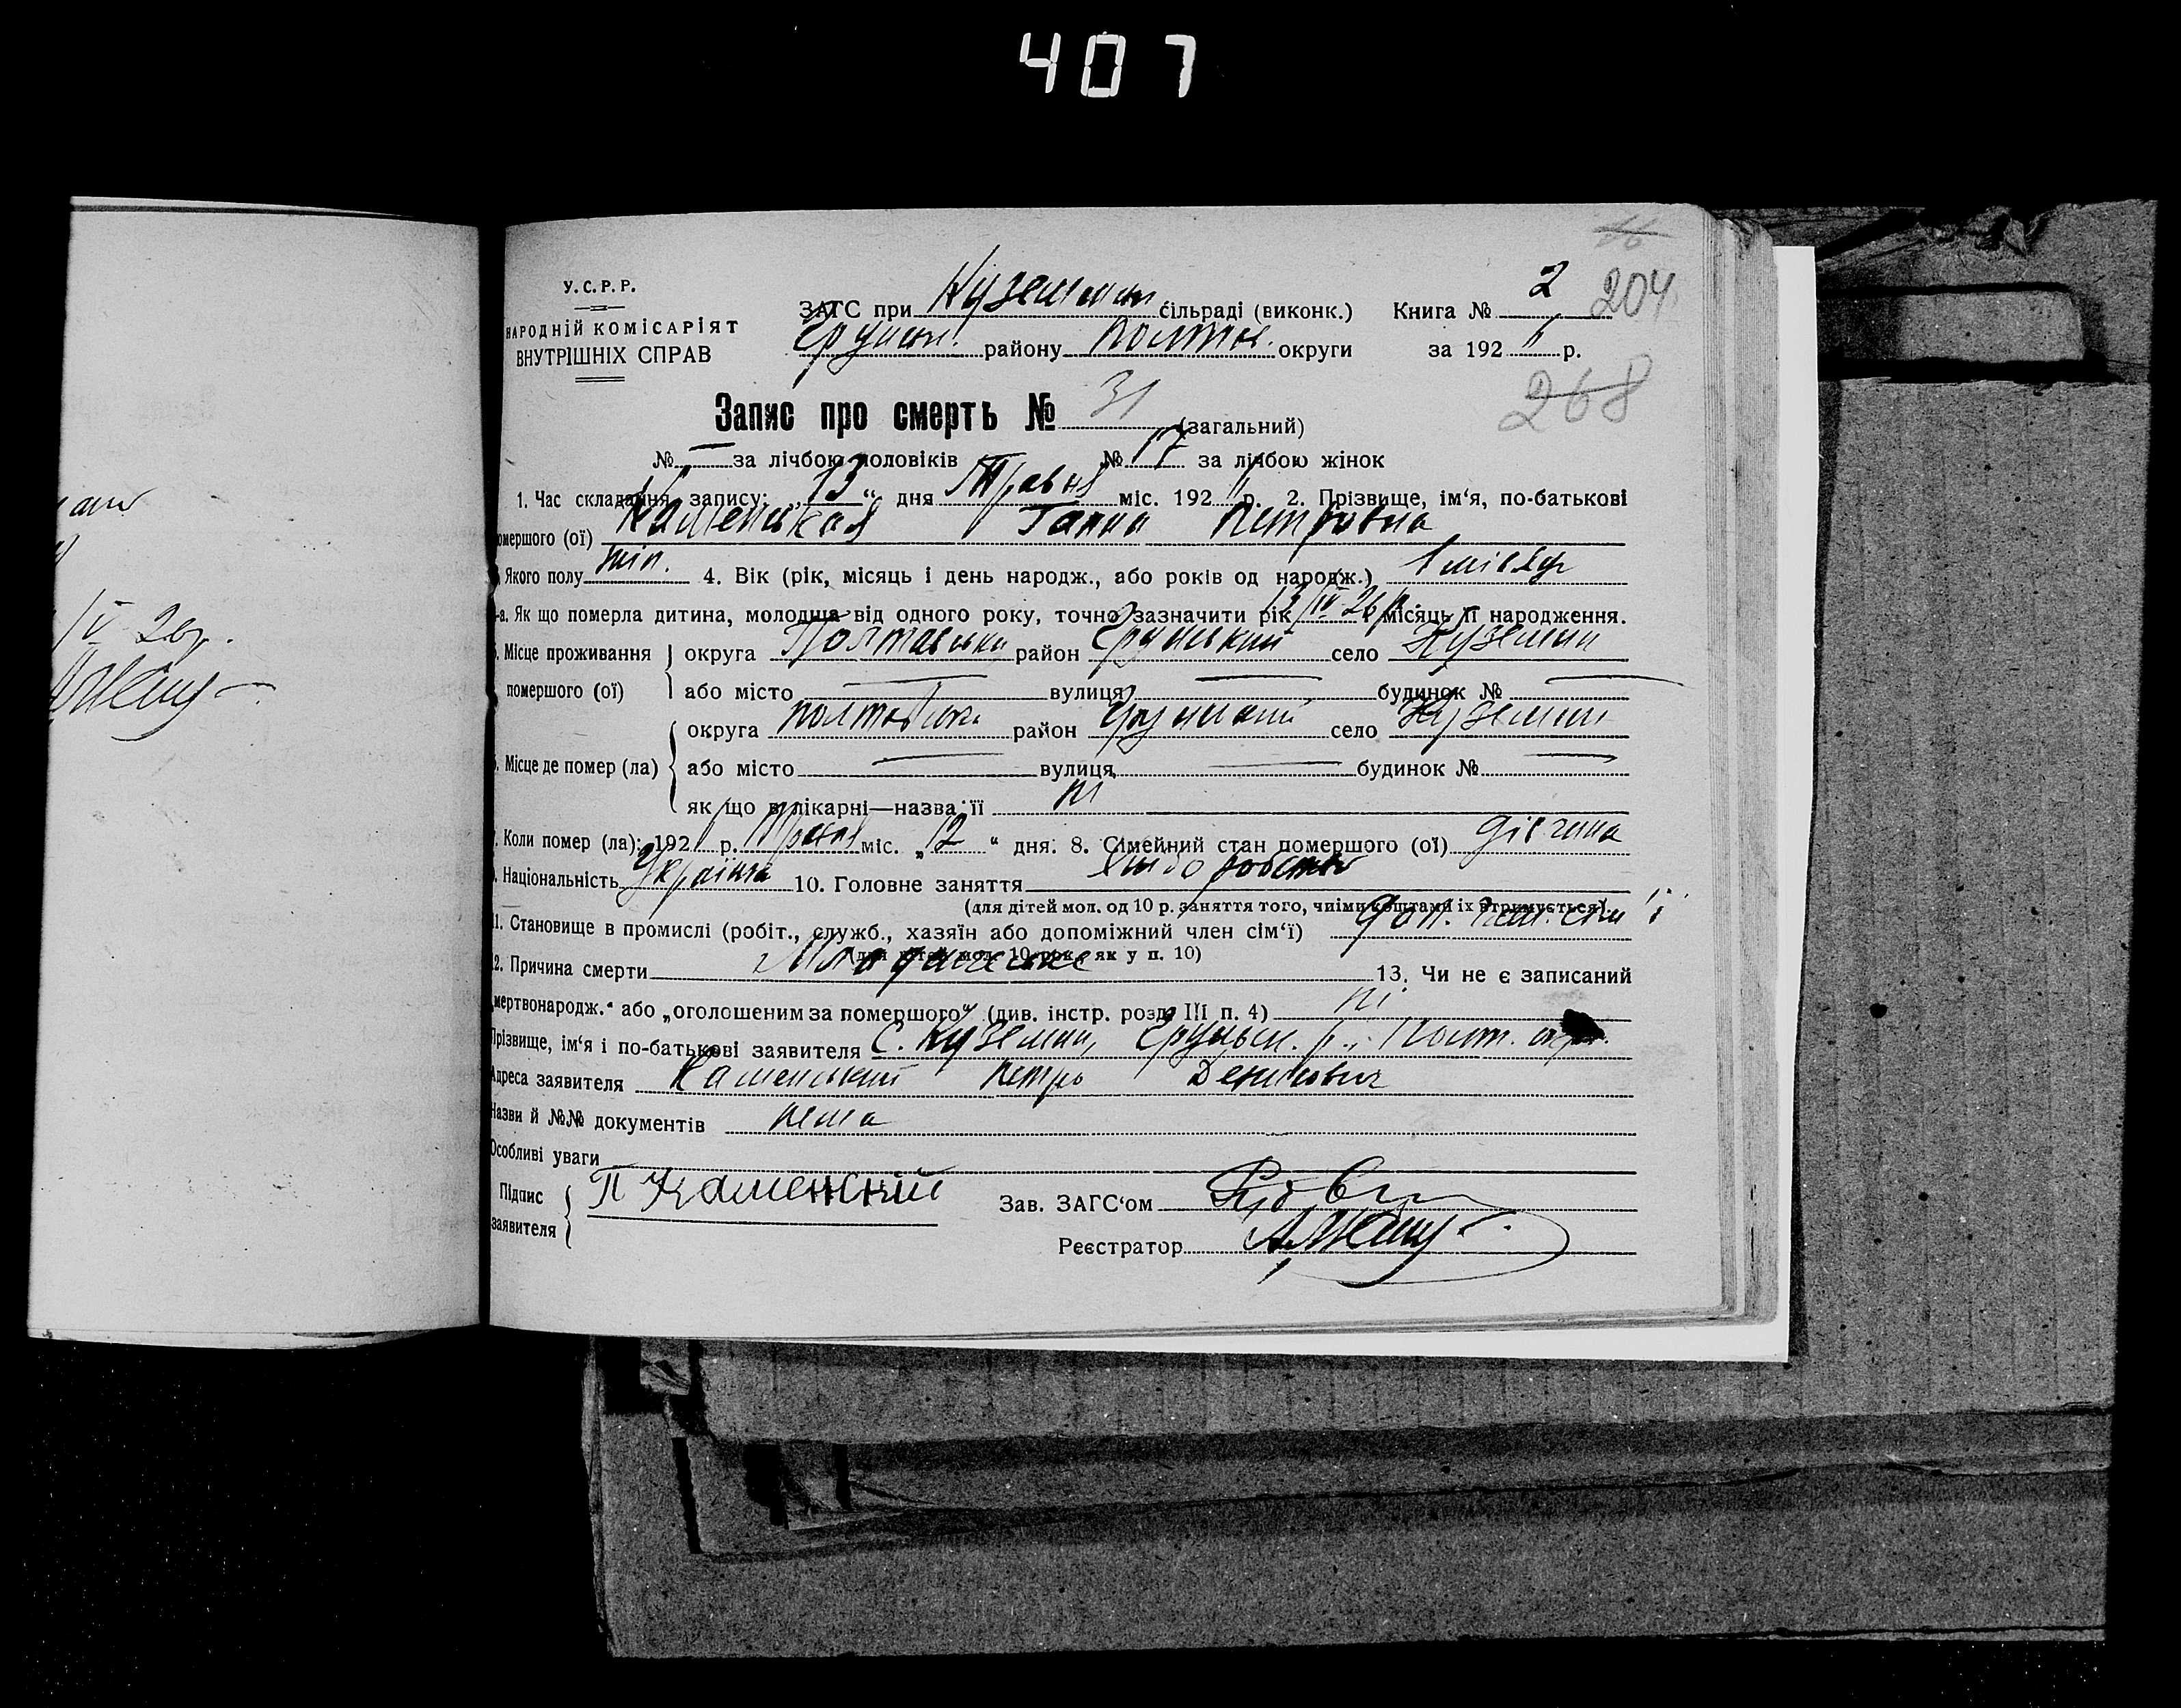 407
16
У.С.Р.Р.
НАРОДНІЙ КОМІСАРІЯТ
ВНУТРІШНІХ СПРАВ
ЗАГС при Куземин сільраді (виконк.) Книга № 2 204
Грунськ. району Полтав. округи за 192 6 р.
268
Запис про смерть № 31 (загальний)
№ — за лічбою чоловіків № 17 за лічбою жінок
1. Час складання запису: „13“ дня Травня міс. 192 6 р. 2. Прізвище, ім‘я, по-батькові
помершого (ої) Каменськая Ганна Петровна
Якого полу жін. 4. Вік (рік, місяць і день народж., або років од народж.) 1 місяць
-а. Як що померла дитина, молодша від одного року, точно зазначити рік 12/IV 26 р. і місяць її народження.
Місце проживання округа Полтавська район Грунський село Куземин
помершого (ої) або місто — вулиця — будинок № —
округа Полтавська район Грунський село Куземин
Місце де помер (ла) або місто — вулиця — будинок № —
як що в лікарні—назва її ні
Коли помер (ла): 192 6 р. Травня міс. „12“ дня. 8. Сімейний стан помершого (ої) дівчина
Національність Українка 10. Головне заняття Хліборобство
(для дітей мол. од 10 р. заняття того, чиїми коштами їх втримується)
11. Становище в промислі (робіт., служб., хазяїн або допоміжний член сім‘ї) доп. член. сім'ї
(для дітей мол. 10 рок., як у п. 10)
12. Причина смерти 13. Чи не є записаний
„мертвонародж.“ або „оголошеним за помершого“ (див. інстр. розд. III п. 4) ні
Прізвище, ім‘я і по-батькові заявителя С. Куземин, Грунськ. р., Полт. окр.
Адреса заявителя Каменський Петро Денисович
Назви й №№ документів нема
Особливі уваги
Підпис заявителя П Каменский Зав. ЗАГС‘ом
Реєстратор
IV 26р.